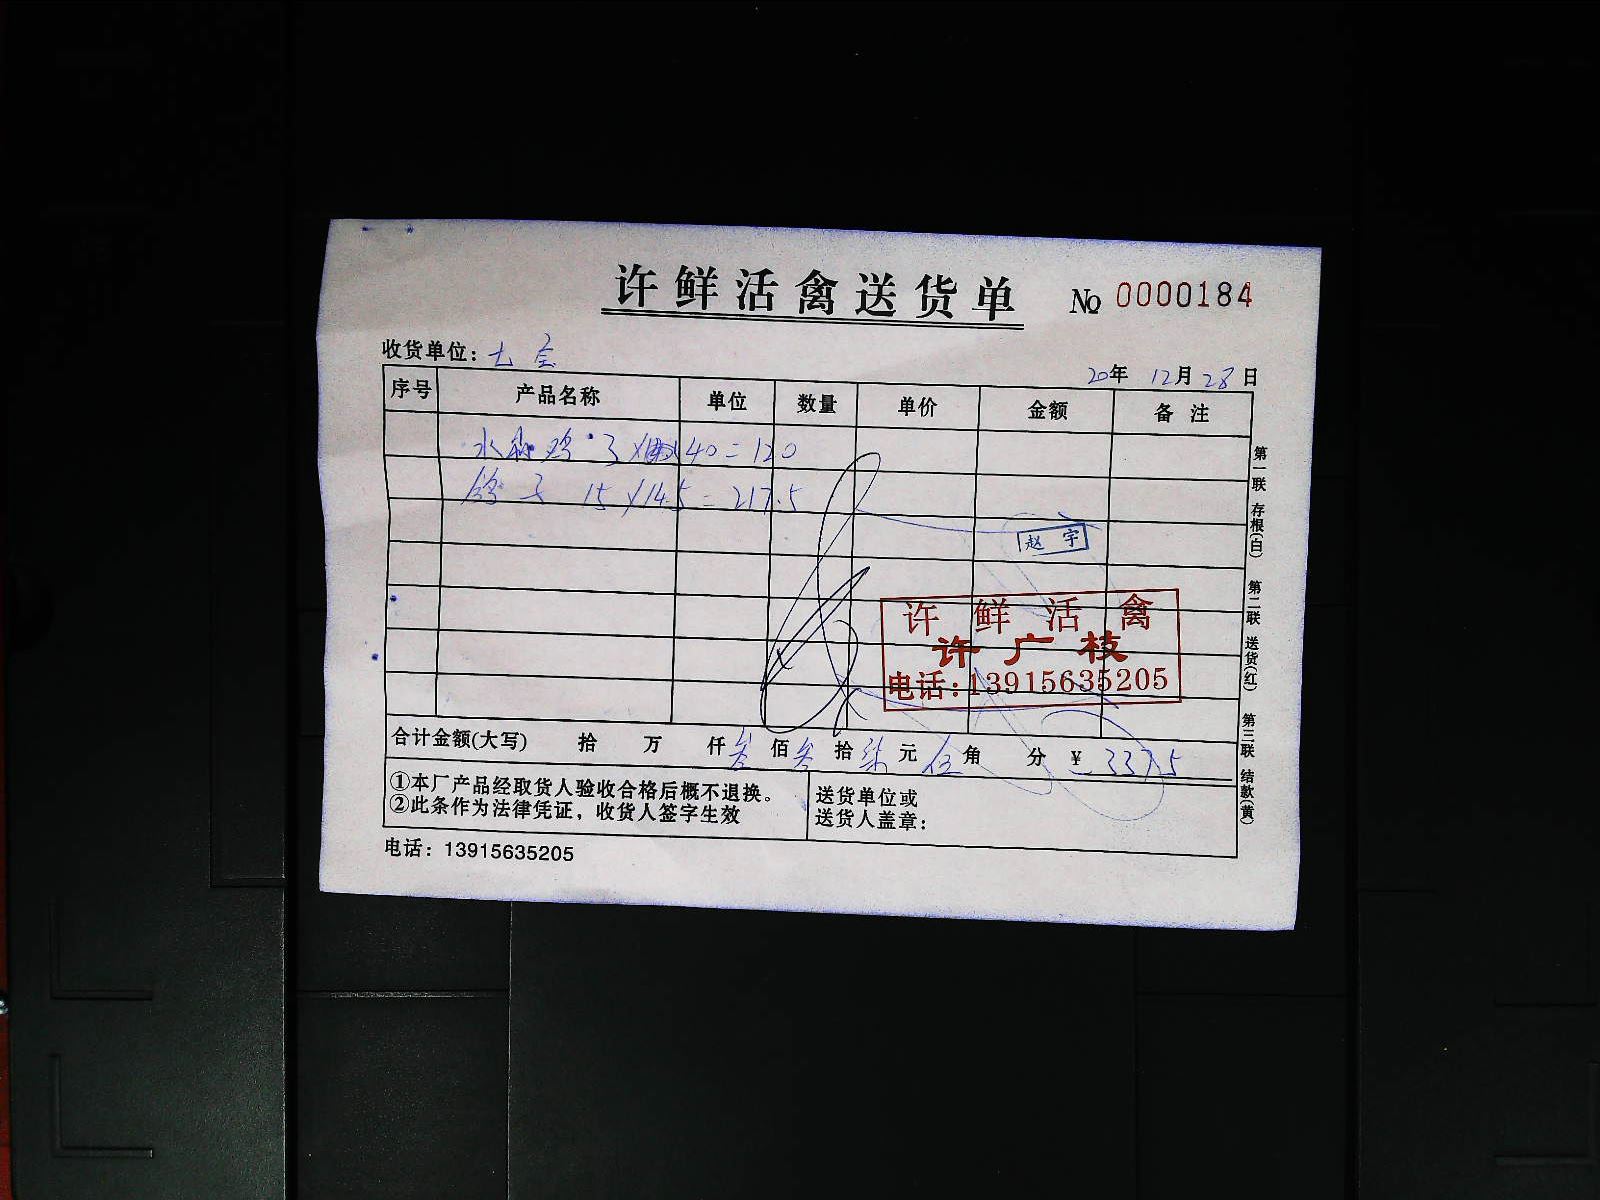 许鲜活禽送货单 No 0000184
收货单位：
20年 12月 28日
序号 产品名称 单位 数量 单价 金额 备注
鸡 3 X 40=120
鸽子 15 X 14.5=217.5
赵宇
许鲜活禽
许广枝
电话：13915635205
合计金额(大写) 拾 万 仟 叁佰 叁拾 柒元 伍角 分 ¥ 337.5
①本厂产品经取货人验收合格后概不退换。
②此条作为法律凭证，收货人签字生效
送货单位或
送货人盖章：
电话：13915635205
第一联 存根(白) 第二联 送货(红) 第三联 结款(黄)